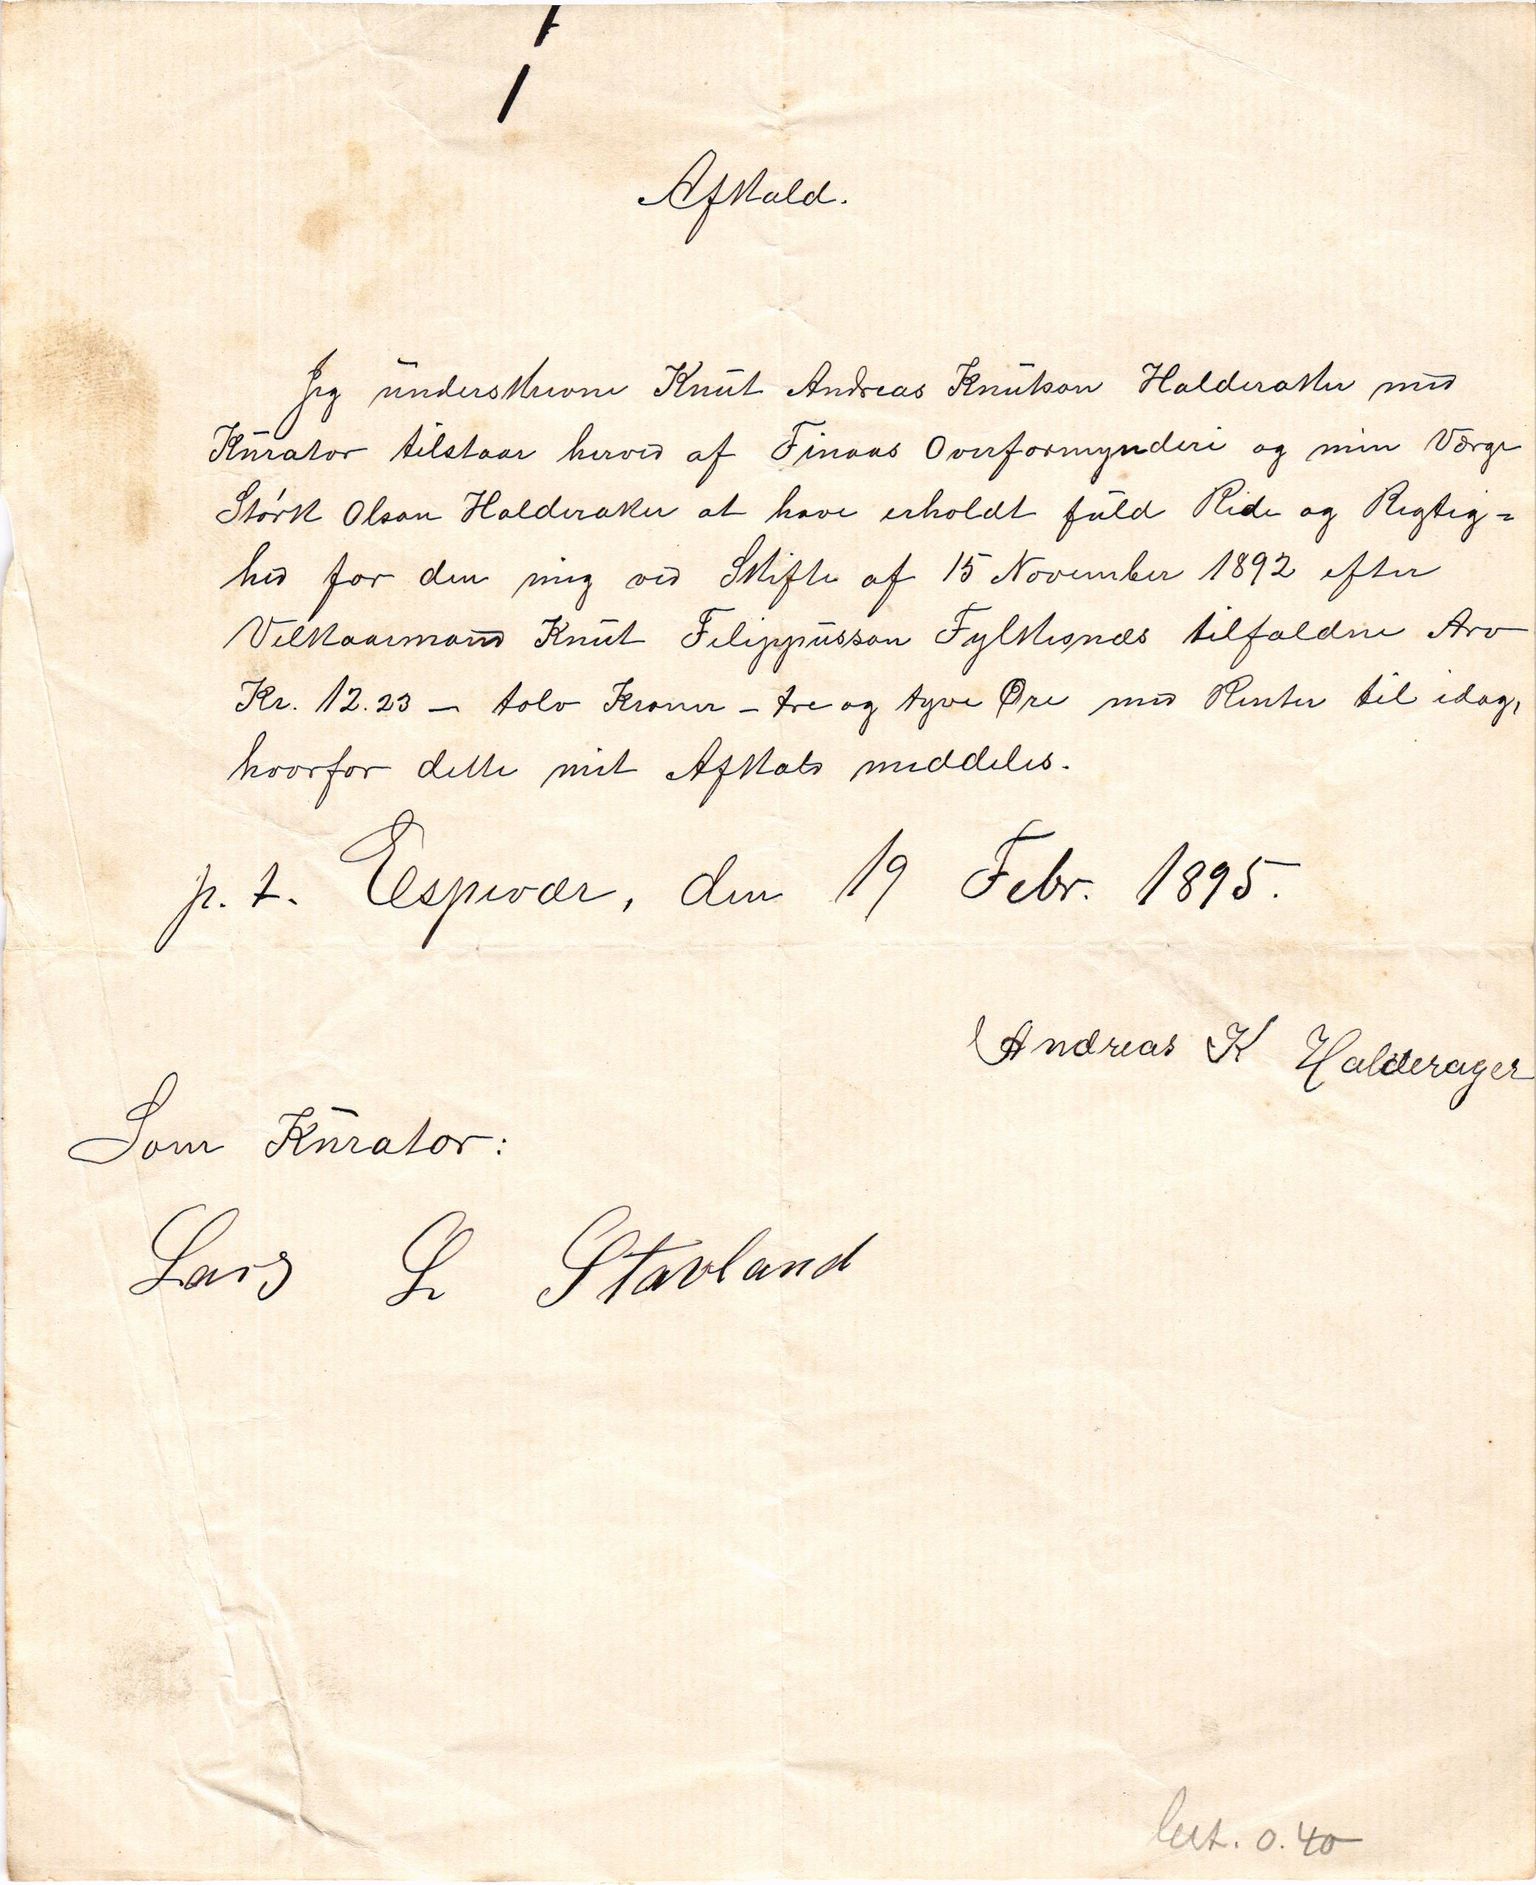 Afkald.
Jeg underskrevne Knut Andreas Knutson Halderaker med
Kurator tilstaar herved af Finaas Overformynderi og min Værge
Størk Olson Halderaker at have erholdt fuld Rede og Rigtig=
hed for den mig ved Skifte af 15 November 1892 efter
Velkaarmand Knut Filippusson Fylkesnæs tilfaldne Arv
Kr. 12.23 – tolv Kroner – tre og tyve Øre med Renter til idag,
hvorfor dette mit Afkald meddeles.
p. t. Espevær, den 19 Febr. 1895.
Andreas K Halderager
Som Kurator:
Lars L Stavland
0.40